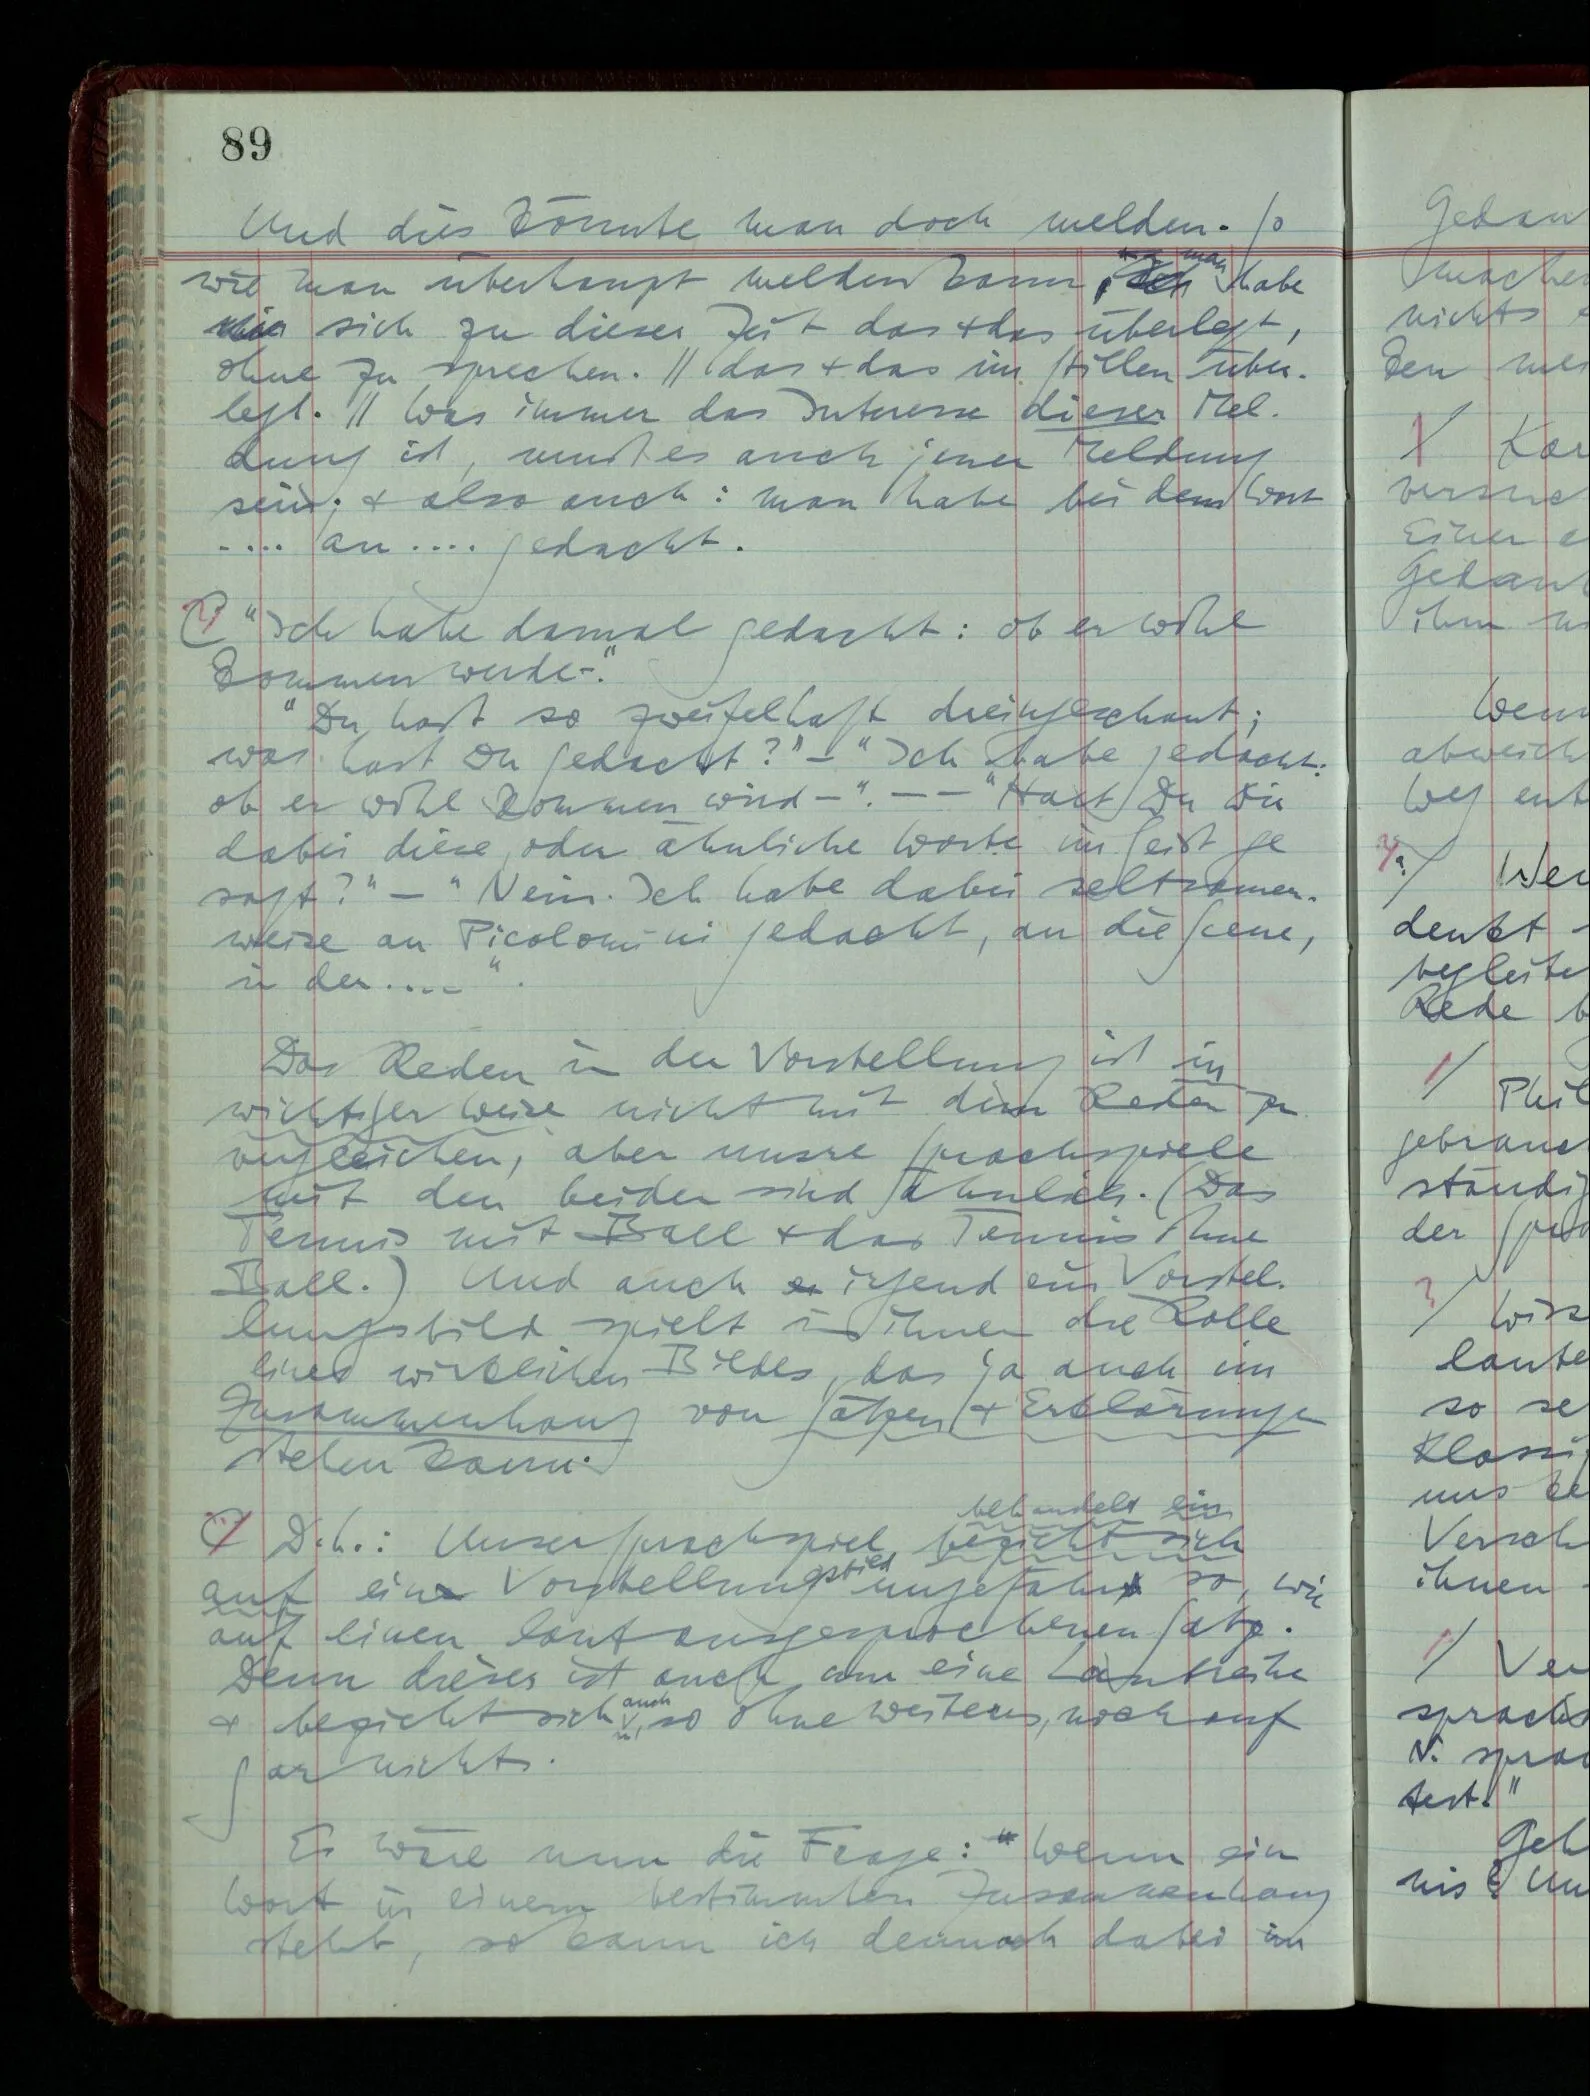 89
Und dies könnte man doch melden. So
wie man überhaupt melden kann, man habe
sich zu dieser Zeit das + das überlegt,
ohne zu sprechen. // das + das im Stillen über-
legt. // Was immer das Interesse dieser Mel-
dung ist, muß es auch jener Meldung
sein; + also auch: man habe bei dem Wort
.... an .... gedacht.
"Ich habe damal gedacht: ob er wohl
kommen werde–."
"Du hast so zweifelhaft dreingeschaut;
was hast Du gedacht?" – "Ich habe gedacht:
ob er wohl kommen wird –". – – "Hast Du Dir
dabei diese, oder ähnliche Worte im Geist ge
sagt?" – "Nein. Ich habe dabei seltsamer-
weise an Picolomini gedacht, an die Scene,
in der ....".
Das Reden in der Vorstellung ist in
wichtiger Weise nicht mit dem Reden zu
vergleichen, aber unsre Sprachspiele
mit den beiden sind ähnlich. (Das
Tennis mit Ball + das Tennis ohne
Ball.) Und auch irgend ein Vorstel-
lungsbild spielt in ihnen die Rolle
eines wirklichen Bildes, das ja auch im
Zusammenhang von Sätzen + Erklärungen
stehen kann.
behandelt ein
D.h.: Unser Sprachspiel bezieht sich
auf ein Vorstellungsbild ungefähr so, wie
auf einen laut ausgesprochenen Satz.
Denn dieser ist auch nur eine Lautreihe
+ bezieht sich auch, so ohne weiteres, noch auf
gar nichts.
Es wäre nun die Frage: "Wenn ein
Wort in einem bestimmten Zusammenhang
steht, so kann ich dennoch dabei im
Gedan
machen
nichts
den
Kar
versuch
Einen
Gedank
ihm
Wenn
abweich
Weg ent
Wer
denkt
begleite
Rede b
Phil
gebrauch
ständig
der Spra
Wiss
laute
so se
Klassi
uns
Versch
ihnen
Ver
sprachs
N. sprac
test."
Geh
nis? Un